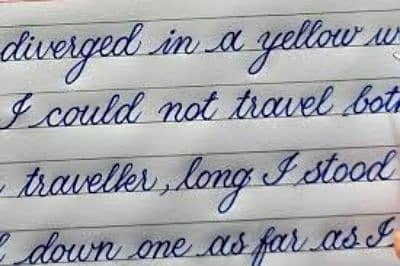 diverged in a yellow
I could not travel
traveller, long I stood
down one as far as I